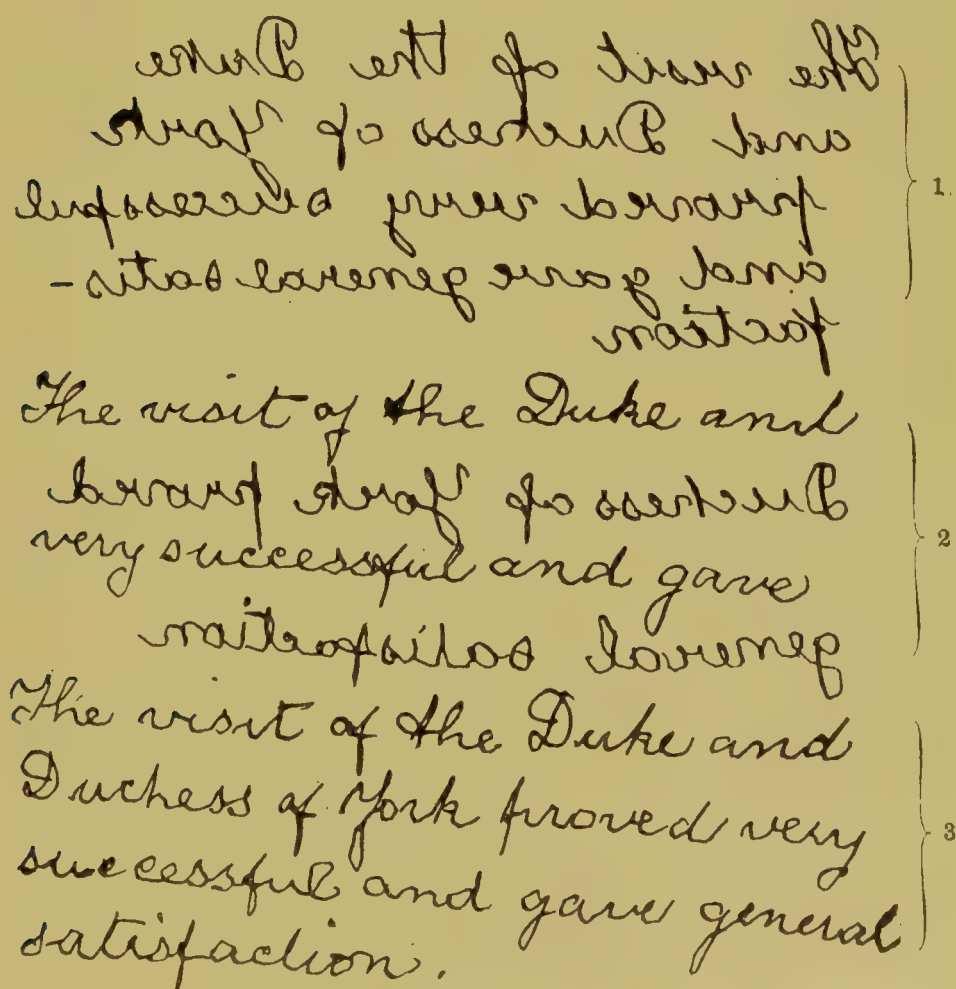 The visit of the Duke
and Duchess of York
proved very successful
and gave general satis-
faction
1.
The visit of the Duke and
Duchess of York proved
very successful and gave
general satisfaction
2
The visit of the Duke and
Duchess of York proved very
successful and gave general
satisfaction.
3